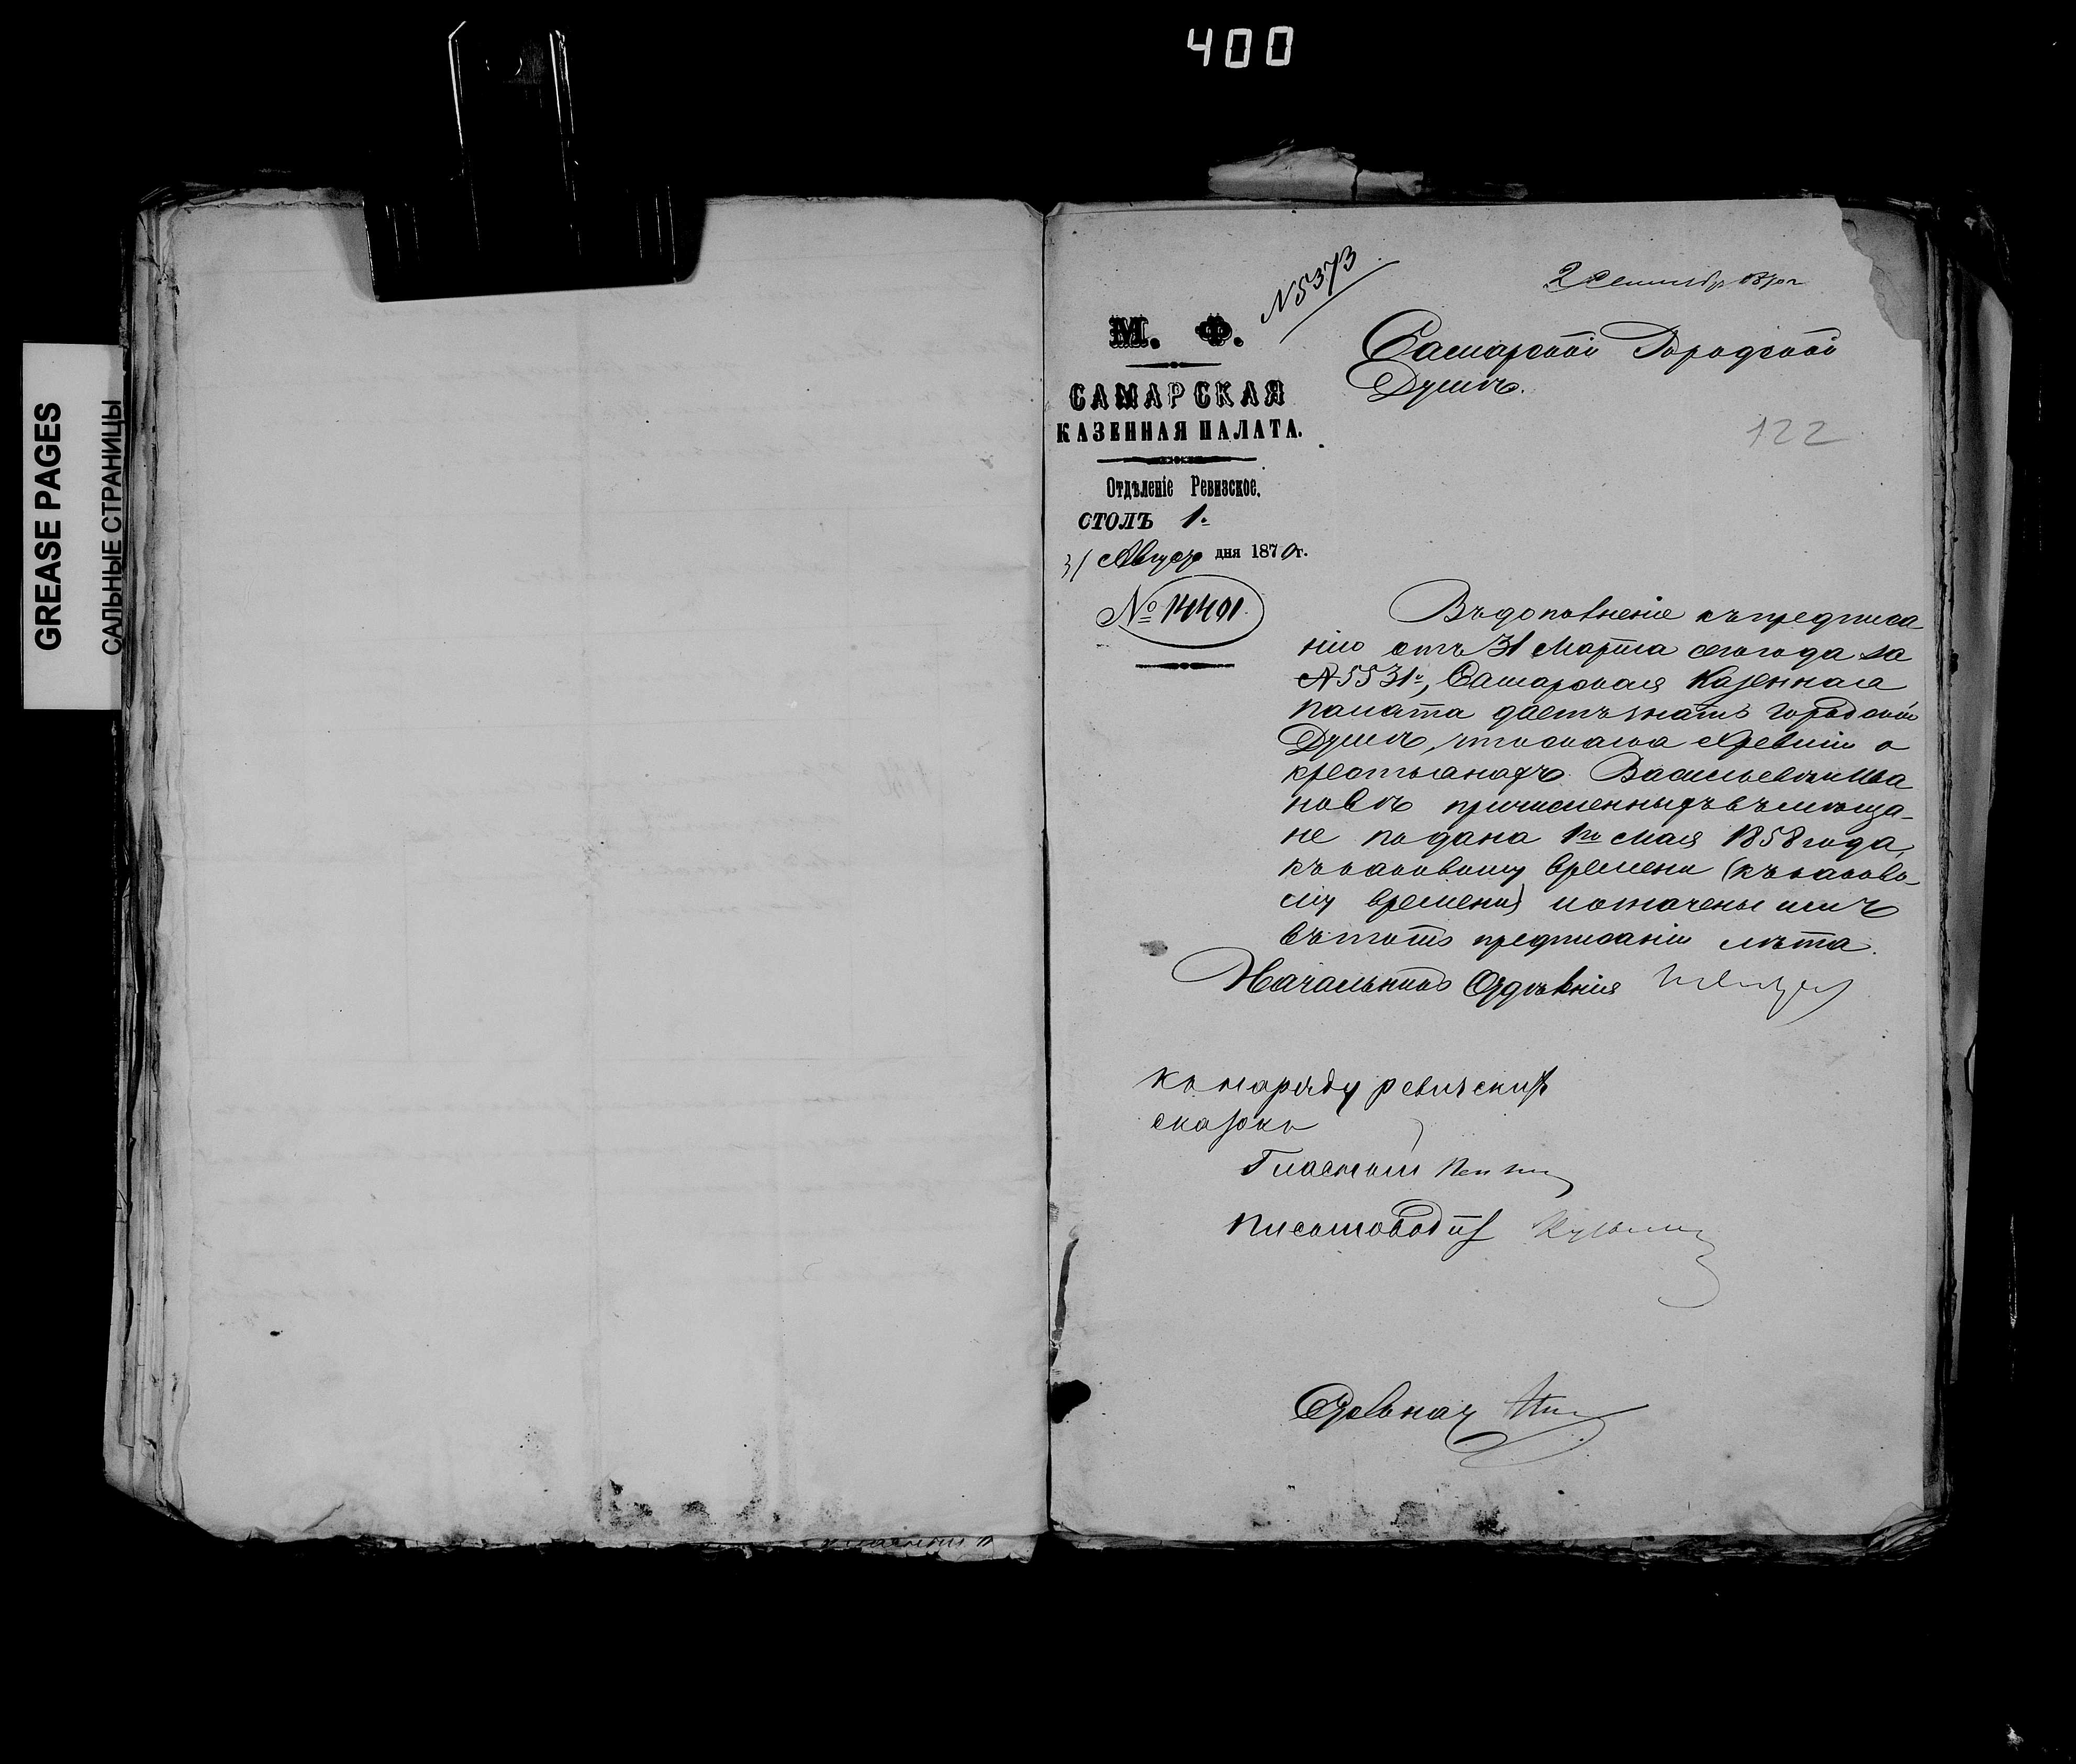 400
GREASE PAGES
САЛЬНЫЕ СТРАНИЦЫ
N 5373
2 Сентябр 1870 г
М. Ф.
САМАРСКАЯ
КАЗЕННАЯ ПАЛАТА.
Отдѣленіе Ревизское.
СТОЛЪ 1.
31 Август дня 1870 г.
№ 14401
Самарской Городской
Думѣ.
122
Въ дополненіе къ предписа
нію отъ 31 Марта сего года за
№ 5531, Самарская Казенная
Палата даетъ знать Городской
Думѣ, что сказка о
крестьянахъ Васильевѣ и Ива
новѣ причисленныхъ въ мѣща-
не подана 1го Мая 1858 года,
къ каковому времени (къ каково-
му времени) и означены имъ
въ томъ предписаніи лѣта.
Начальникъ Отдѣленія
Къ наряду ревизскихъ
сказокъ
Гласный
Письмоводит